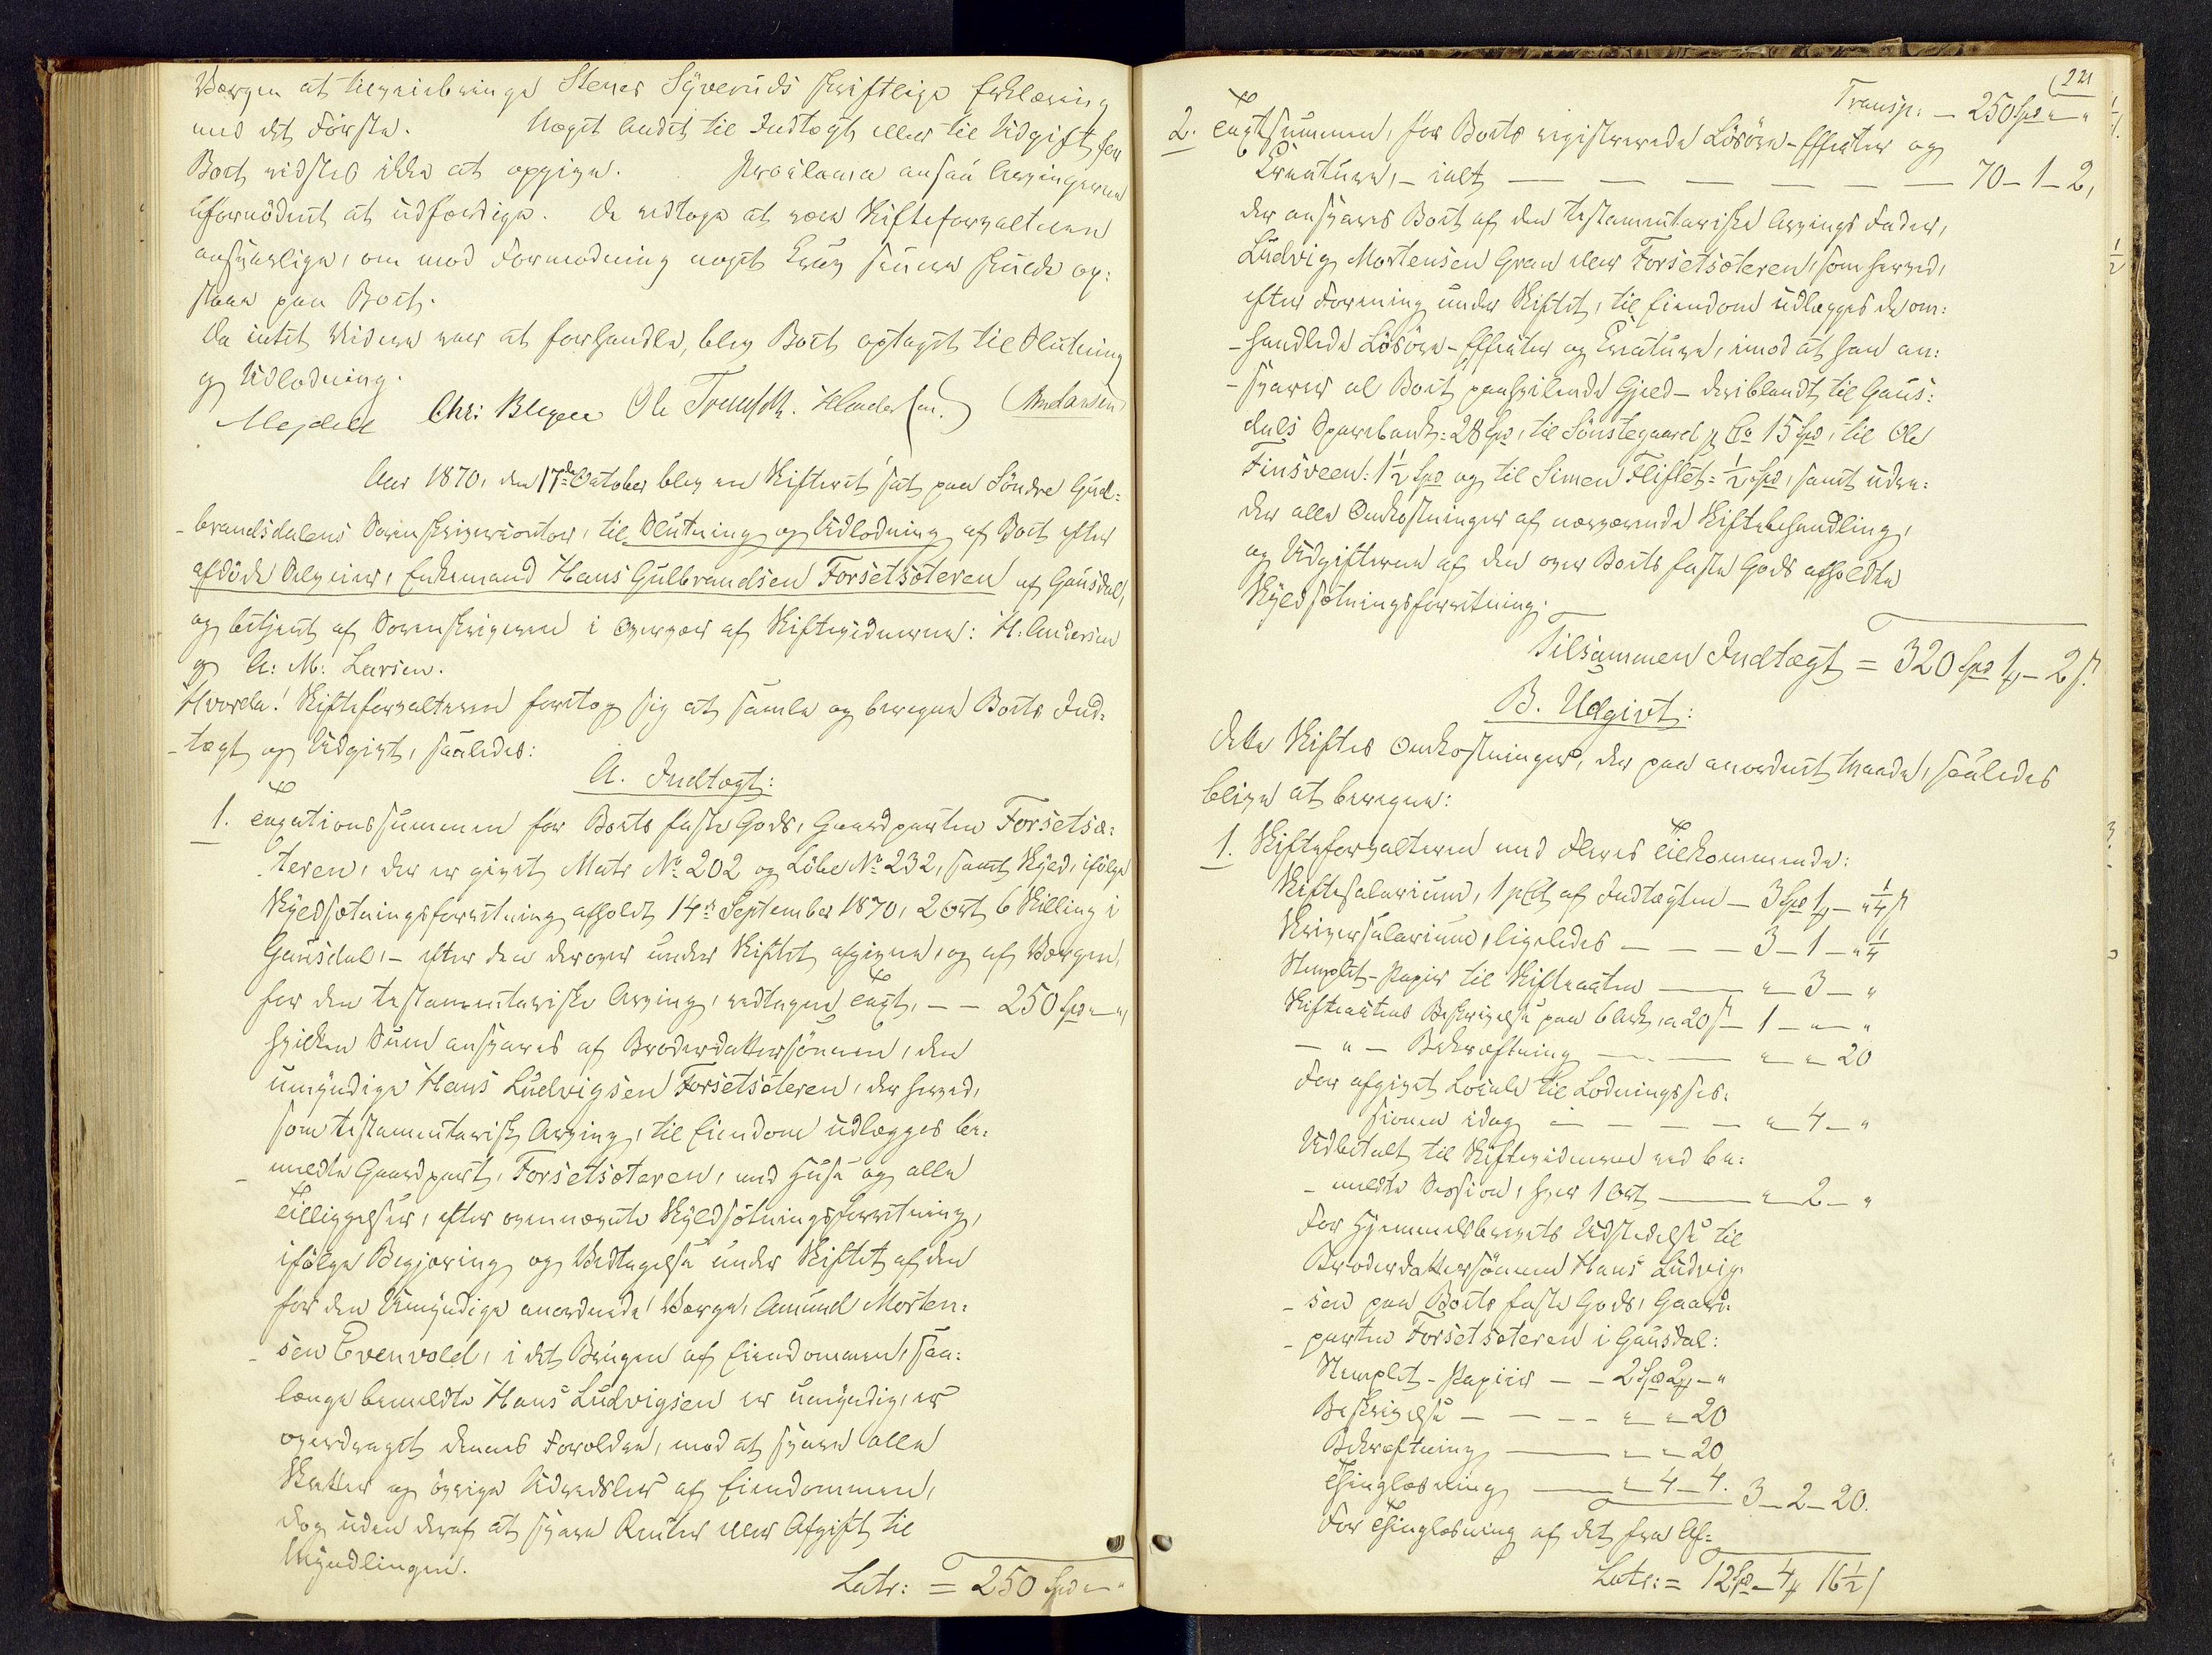 Værgen at tilveiebringe Steners Syveruds skriftlige Erklæring
med det Første. Noget Andet til Indtægt eller til Udgift for
Boet vidstes ikke at opgive. Proclama ansaa Arvingerne
ufornødent at udfærdige. De vedtoge at være Skifteforvalteren
ansvarlige, om mod Formodning noget Krav senere skulde op-
staae paa Boet.
Da intet Videre var at forhandle, blev Boet optaget til Slutning
og Udlodning.
Mejdell Chr: Blegen Ole H. Andersen. AmLarsen
Aar 1870, den 17de October blev en Skifteret sat paa Søndre Gud-
-brandsdalens Sorenskrivercontor, til Slutning og Udlodning af Boet efter
afdøde Selveier, Enkemand Hans Gulbrandsen Forsetsæteren af Gausdal,
og betjent af Sorenskriveren i Overvær af Skiftevidnerne: H. Andersen
og A: M: Larsen.
Hvorda! Skifteforvalteren foretog sig at samle og beregne Boets Ind-
-tægt og Udgivt, saaledes:
A. Indtægt:
1. Taxationssummen for Boets faste Gods, Gaardparten Forsetsæ-
teren, der er givet Matr No 202 og Løbe No 232, samt Skyld, ifølge
Skyldsætningsforretning afholdt 14de September 1870, 2 Ort 6 Skilling i
Gausdal, - efter den derover under Skiftet afgivne, og af Værgen,
for den testamentariske Arving, vedtagne Taxt, - - 250 Spd " "
hvilken Sum ansvares af Broderdattersønnen, den
umyndige Hans Ludvigsen Forsetsæteren, der herved,
som testamentarisk Arving, til Eiendom udlægges be-
-meldte Gaardpart, Forsetsæteren, med Huse og alle
Tilliggelser, efter ovennævnte Skyldsætningsforretning,
ifølge Begjæring og Vedtagelse under Skiftet af den
for den Umyndige anordnede Værge, Amund Morten-
-sen Evenvold, i det Brugen af Eiendommen, saa-
længe bemeldte Hans Ludvigsen er umyndig, er
overdraget dennes Forældre, mod at svare alle
Skatter og øvrige Udredsler af Eiendommen,
dog uden deraf at svare Renter eller Afgift til
Myndlingen.
Latr: = 250 Spd " "
221
Transp: - 250 Spd " "
2. Taxtsummen, for Boets registrerede Løsøre-Effecter og
Creature, - ialt - - - - - - 70-1-2,
der ansvares Boet af den testamentariske Arvings Fader,
Ludvig Mortensen Gran eller Forsetsæteren, som herved,
efter Forening under Skiftet, til Eiendom udlægges de om-
-handlede Løsøre-Effecter og Creature, imod at han an-
-svarer al Boet paahvilende Gjeld - deriblandt til Gaus-
dals Sparebank: 28 Spd, til Sønstegaard & Co 15 Spd, til Ole
Finsveen: 1½ Spd og til Simen Fliflet = ½ Spd, samt udre-
der alle Omkostninger af nærværende Skiftebehandling,
og Udgifterne af den over Boets faste Gods afholdte
Skyldsætningsforretning.
Tilsammen Indtægt = 320 Spd 1 - 2 s.
B. Udgivt:
Dette Skiftes Omkostninger, der paa anordnet Maade, saaledes
blive at beregne:
1. Skifteforvalteren med Fleres Tilkommende:
Skiftesalarium, 1 pCt af Indtægten - 3 Spd 1 - " ¼ s
Skriversalarium, ligeledes - - - 3 - 1 - " ¼
Stemplet-Papir til Skifteacten - " 3 - "
Skifteactens Beskrivelse paa 6 Ark, a 20 s - 1 - " - "
- " - Bekræftning - - " " 20
For afgivet Locale til Lodningsses-
sionen idag - - - - " 4 - "
Udbetalt til Skiftevidnerne ved be-
-meldte Session, hver 1 Ort - " 2 - "
For Hjemmelsbrevets Udstedelse til
Broderdattersønnen Hans Ludvig-
-sen paa Boets faste Gods, Gaard-
-parten Forsetsæteren i Gausdal:
Stemplet-Papiir - - 2 Spd 2 - "
Beskrivelse - - - - " " 20
Bekræftning - " " 20
Thinglæsning - " 4 - 4. 3 - 2 - 20.
For Thinglæsning af det fra Af-
Latr: = 12 Spd - 4 16½ s